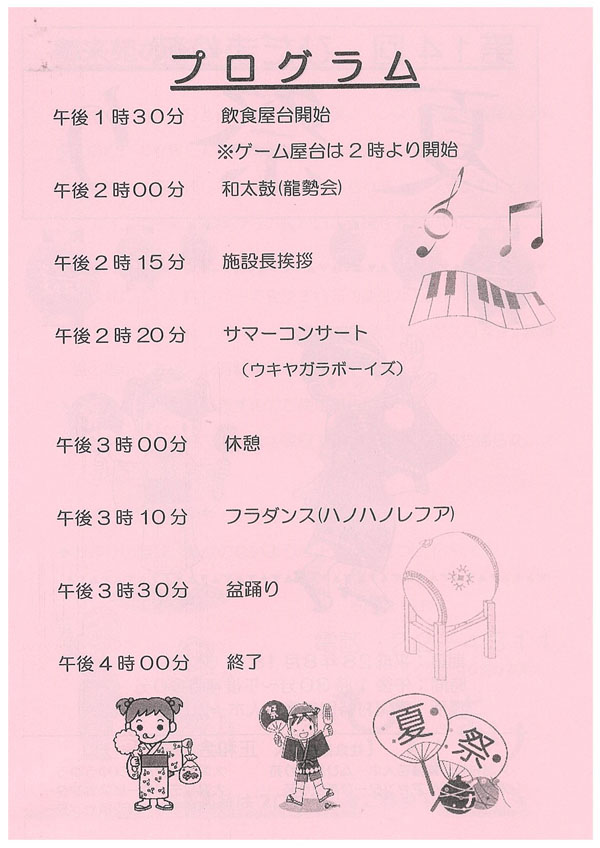 プログラム
午後１時３０分 飲食屋台開始
※ゲーム屋台は２時より開始
午後２時００分 和太鼓(龍勢会)
午後２時１５分 施設長挨拶
午後２時２０分 サマーコンサート
（ウキヤガラボーイズ）
午後３時００分 休憩
午後３時１０分 フラダンス(ハノハノレフア)
午後３時３０分 盆踊り
午後４時００分 終了
夏
祭